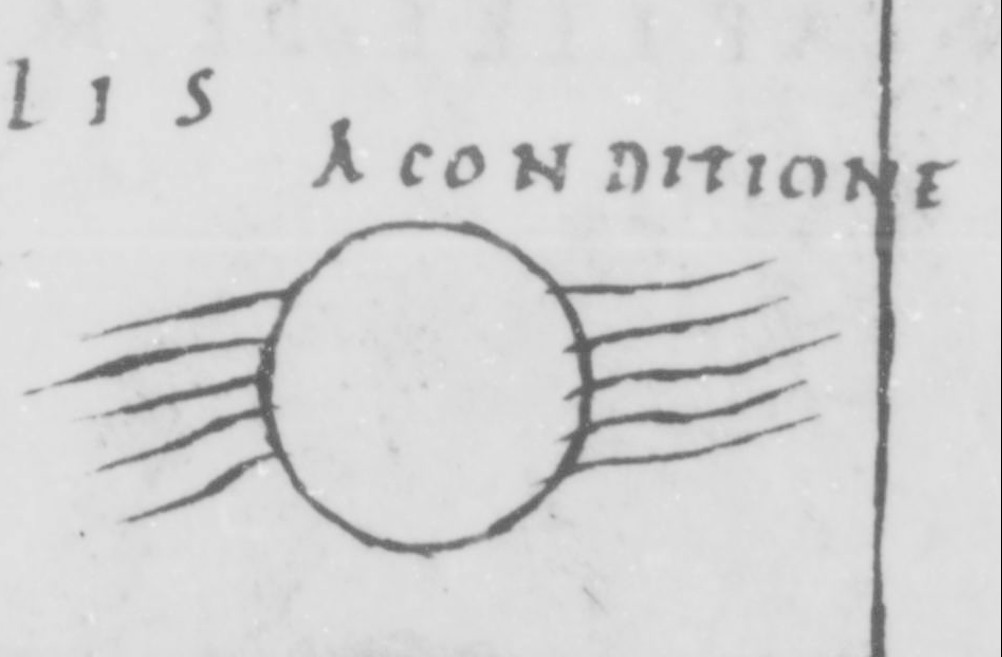 LIS
A CONDITIONE